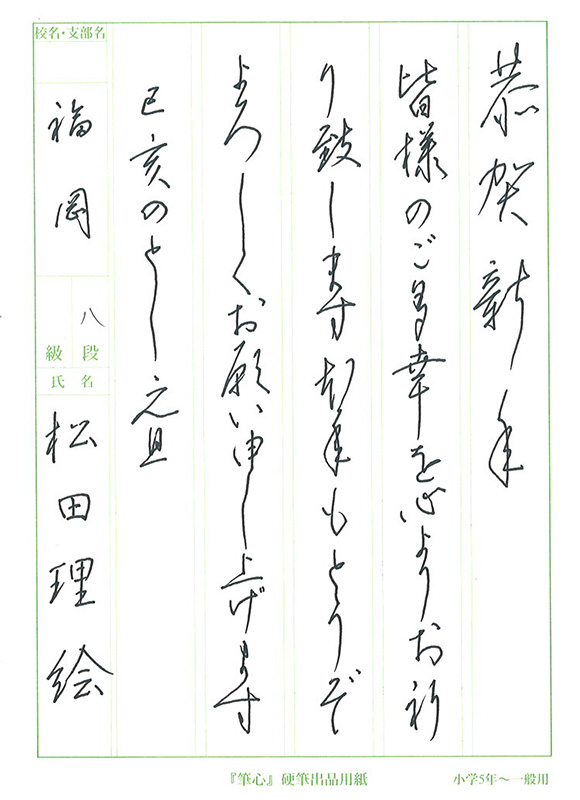 恭賀新年
皆様のご多幸を心よりお祈
り致します本年もどうぞ
よろしくお願い申し上げます
己亥のとし元旦
校名・支部名
福岡
八段
級
氏名
松田理絵
『筆心』硬筆出品用紙
小学5年〜一般用